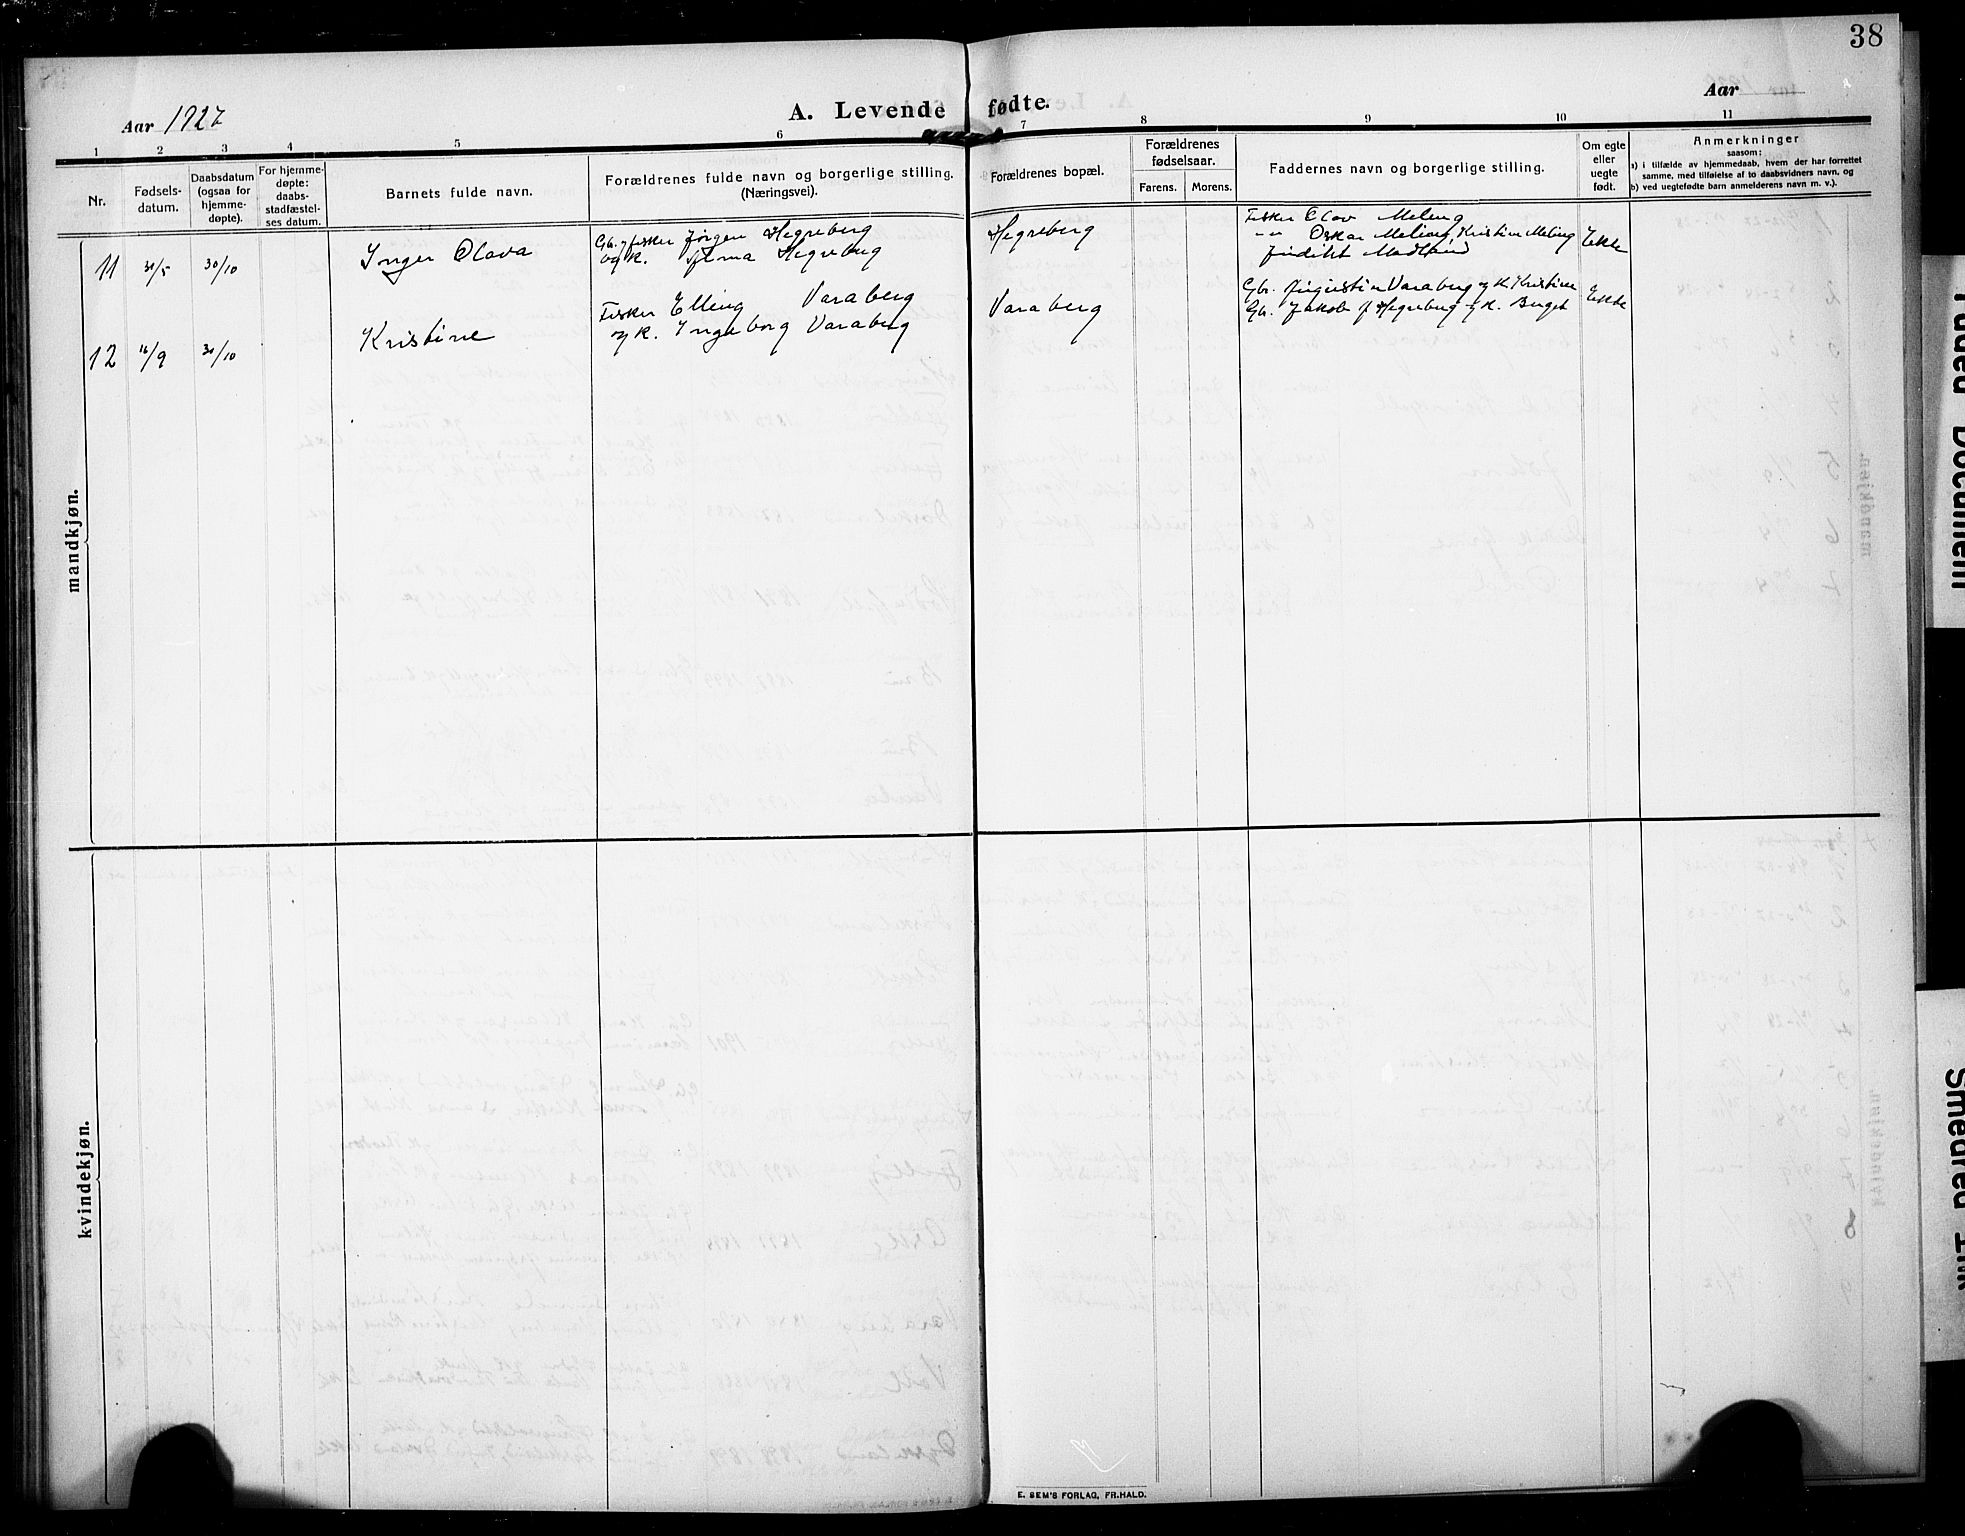 38
Aar 1927
A. Levende fødte.
Aar
1 2 3 4 5 6 7 8 9 10 11
Nr.
Fødsels-
datum.
Daabsdatum
(ogsaa for
hjemme-
døpte).
For hjemme-
døpte:
daabs-
stadfæstel-
ses datum.
Barnets fulde navn.
Forældrenes fulde navn og borgerlige stilling.
(Næringsvei).
Forældrenes bopæl.
Forældrenes
fødselsaar.
Farens. Morens.
Faddernes navn og borgerlige stilling.
Om egte
eller
uegte
født.
Anmerkninger
saasom:
a) i tilfælde av hjemmedaab, hvem der har forrettet
samme, med tilføielse af to daabsvidners navn, og
b) ved uegtefødte barn anmelderens navn m. v.).
mandkjøn.
11 31/5 30/10 Inger Olava
Gb. og fisker Jørgen Hegreberg
og K. Hegreberg
Hegreberg
Fisker Olav Meling
-"- Oskar Meling, Kristine Meling
Madland
Ekte
12 16/9 30/10 Kristine
Fisker Elling Varaberg
og K. Ingeborg Varaberg
Varaberg
Gb. Augustin Varaberg og K. Kristine
Gb. Jakob J Hegreberg og K. Berget
Ekte
kvindekjøn.
E. SEM'S FORLAG, FR.HALD.
Faded Document
Smeared Ink